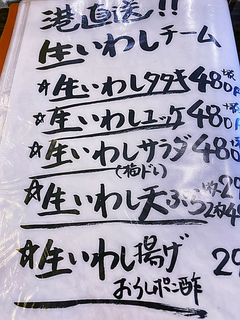 港直送!!
生いわしチーム
☆生いわしタタキ 480
☆生いわしユッケ 480
☆生いわしサラダ 480
(梅ドレ)
☆生いわし天ぷら
☆生いわし揚げ 29
おろしポン酢